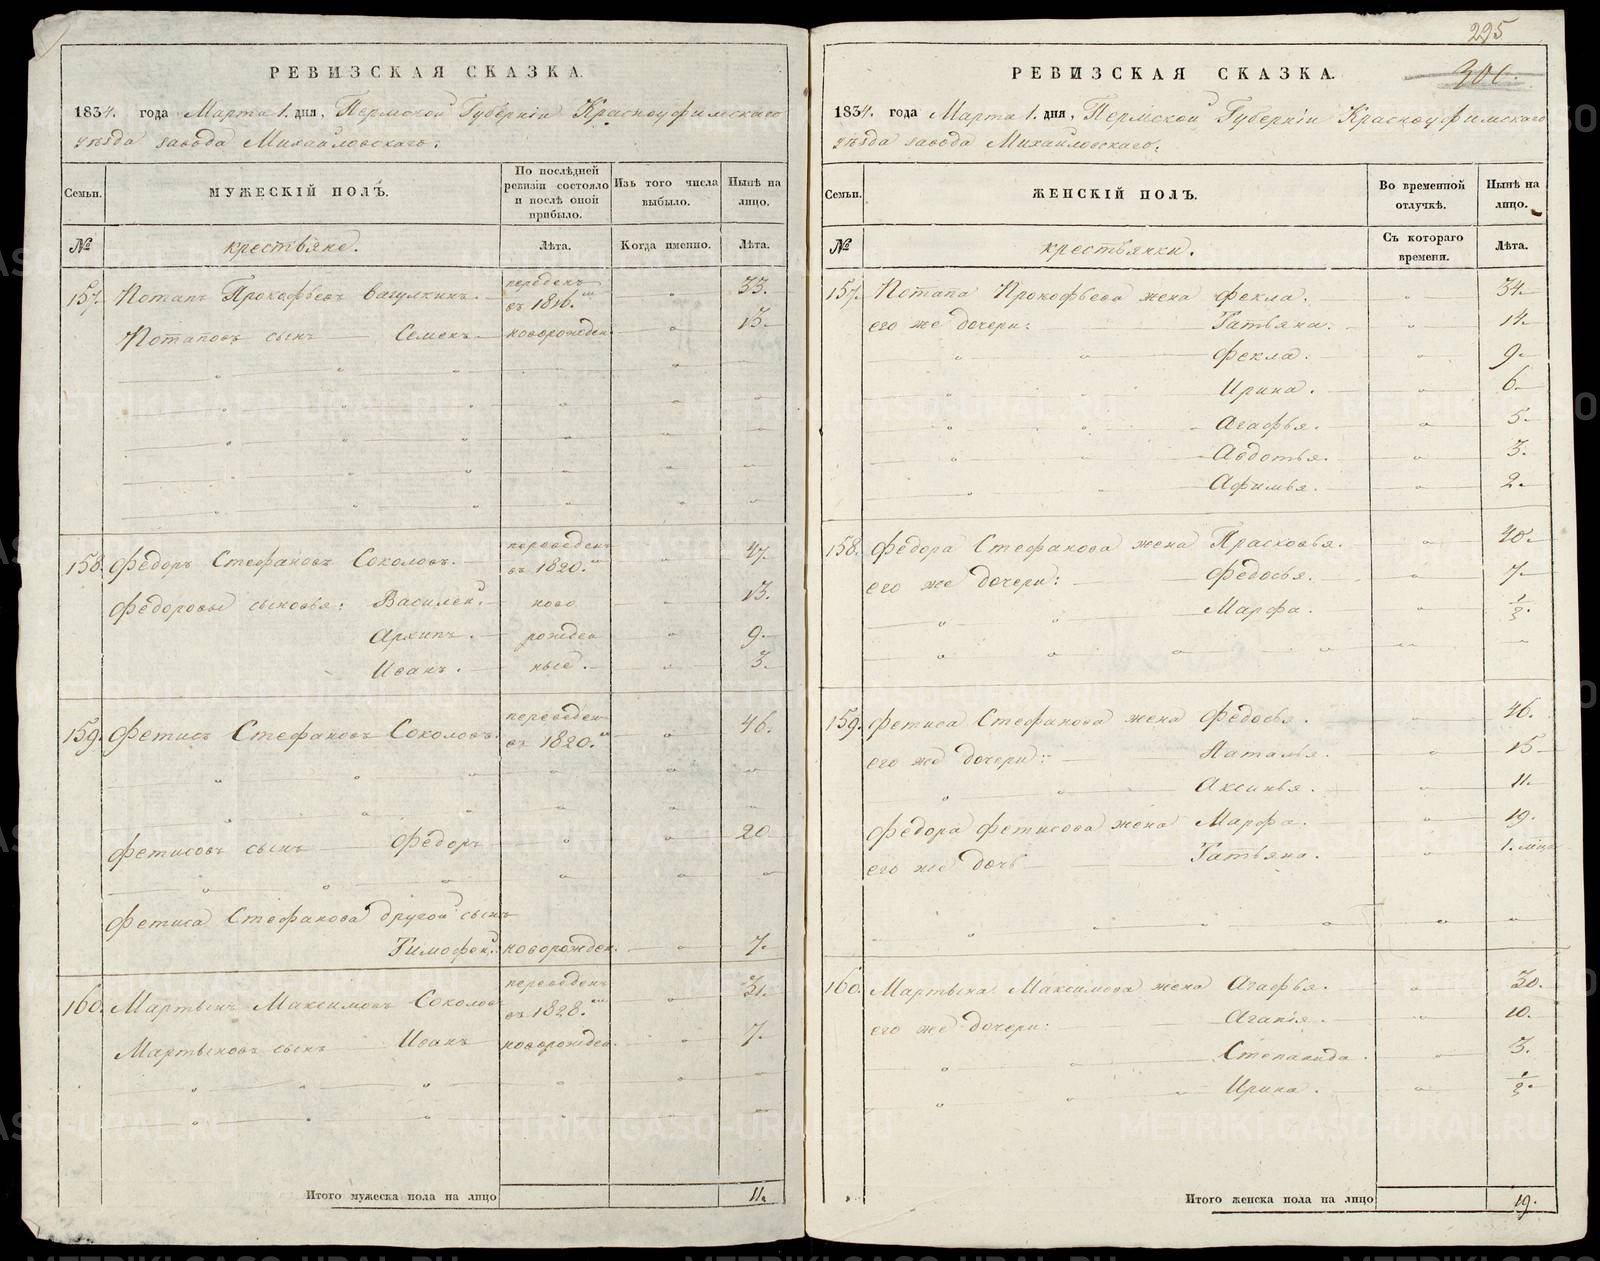 РЕВИЗСКАЯ СКАЗКА.
1834. года Марта 1. дня, Пермской Губерніи Красноуфимскаго
уѣзда завода Михайловскаго.
Семьи. МУЖЕСКІЙ ПОЛЪ. По послѣдней ревизіи состояло и послѣ оной прибыло. Изъ того числа выбыло. Нынѣ на лицо.
№ крестьяне. Лѣта. Когда именно. Лѣта.
157. Потапъ Прокофьевъ Вагулкинъ. переведенъ въ 1816.мъ „ 33.
Потаповъ сынъ Семенъ новорожден. „ 13.
158. Федоръ Стефановъ Соколовъ. переведенъ въ 1820.мъ „ 47.
Федоровы сыновья: Василей. ново „ 13.
Архипъ. рожден „ 9.
Иванъ. ные. „ 3.
159. Фетисъ Стефановъ Соколовъ. переведен въ 1820.мъ „ 46.
Фетисовъ сынъ Федоръ „ „ 20
Фетиса Стефанова другой сынъ
Тимофей. новорожден. „ 7.
160. Мартынъ Максимовъ Соколовъ переведенъ въ 1828.мъ „ 31.
Мартыновъ сынъ Иванъ новорожден. „ 7.
Итого мужеска пола на лицо 11.
295
301.
РЕВИЗСКАЯ СКАЗКА.
1834. года Марта 1. дня, Пермской Губерніи Красноуфимскаго
уѣзда завода Михайловскаго.
Семьи. ЖЕНСКІЙ ПОЛЪ. Во временной отлучкѣ. Нынѣ на лицо.
№ крестьянки. Съ котораго времени. Лѣта.
157. Потапа Прокофьева жена Фекла. „ 34.
его же дочери: Татьяна. „ 14.
„ „ Фекла. „ 9.
Ирина. „ 6.
Агафья. „ 5.
Авдотья. „ 3.
Афимья. „ 2.
158. Федора Стефанова жена Прасковья. „ 40.
его же дочери: Федосья. „ 7.
Марфа. „ 1/2.
159. Фетиса Стефанова жена Федосья. „ 46.
его же дочери: Наталья. „ 15
Аксинья. „ 11.
Федора Фетисова жена Марфа. „ 19.
его же дочь Татьяна. „ 1. мѣся
160. Мартына Максимова жена Агафья. „ 30.
его же дочери: Агапія. „ 10.
Степанида. „ 3.
Ирина. „ 1/2.
Итого женска пола на лицо 19.
METRIKI.GASO-URAL.RU